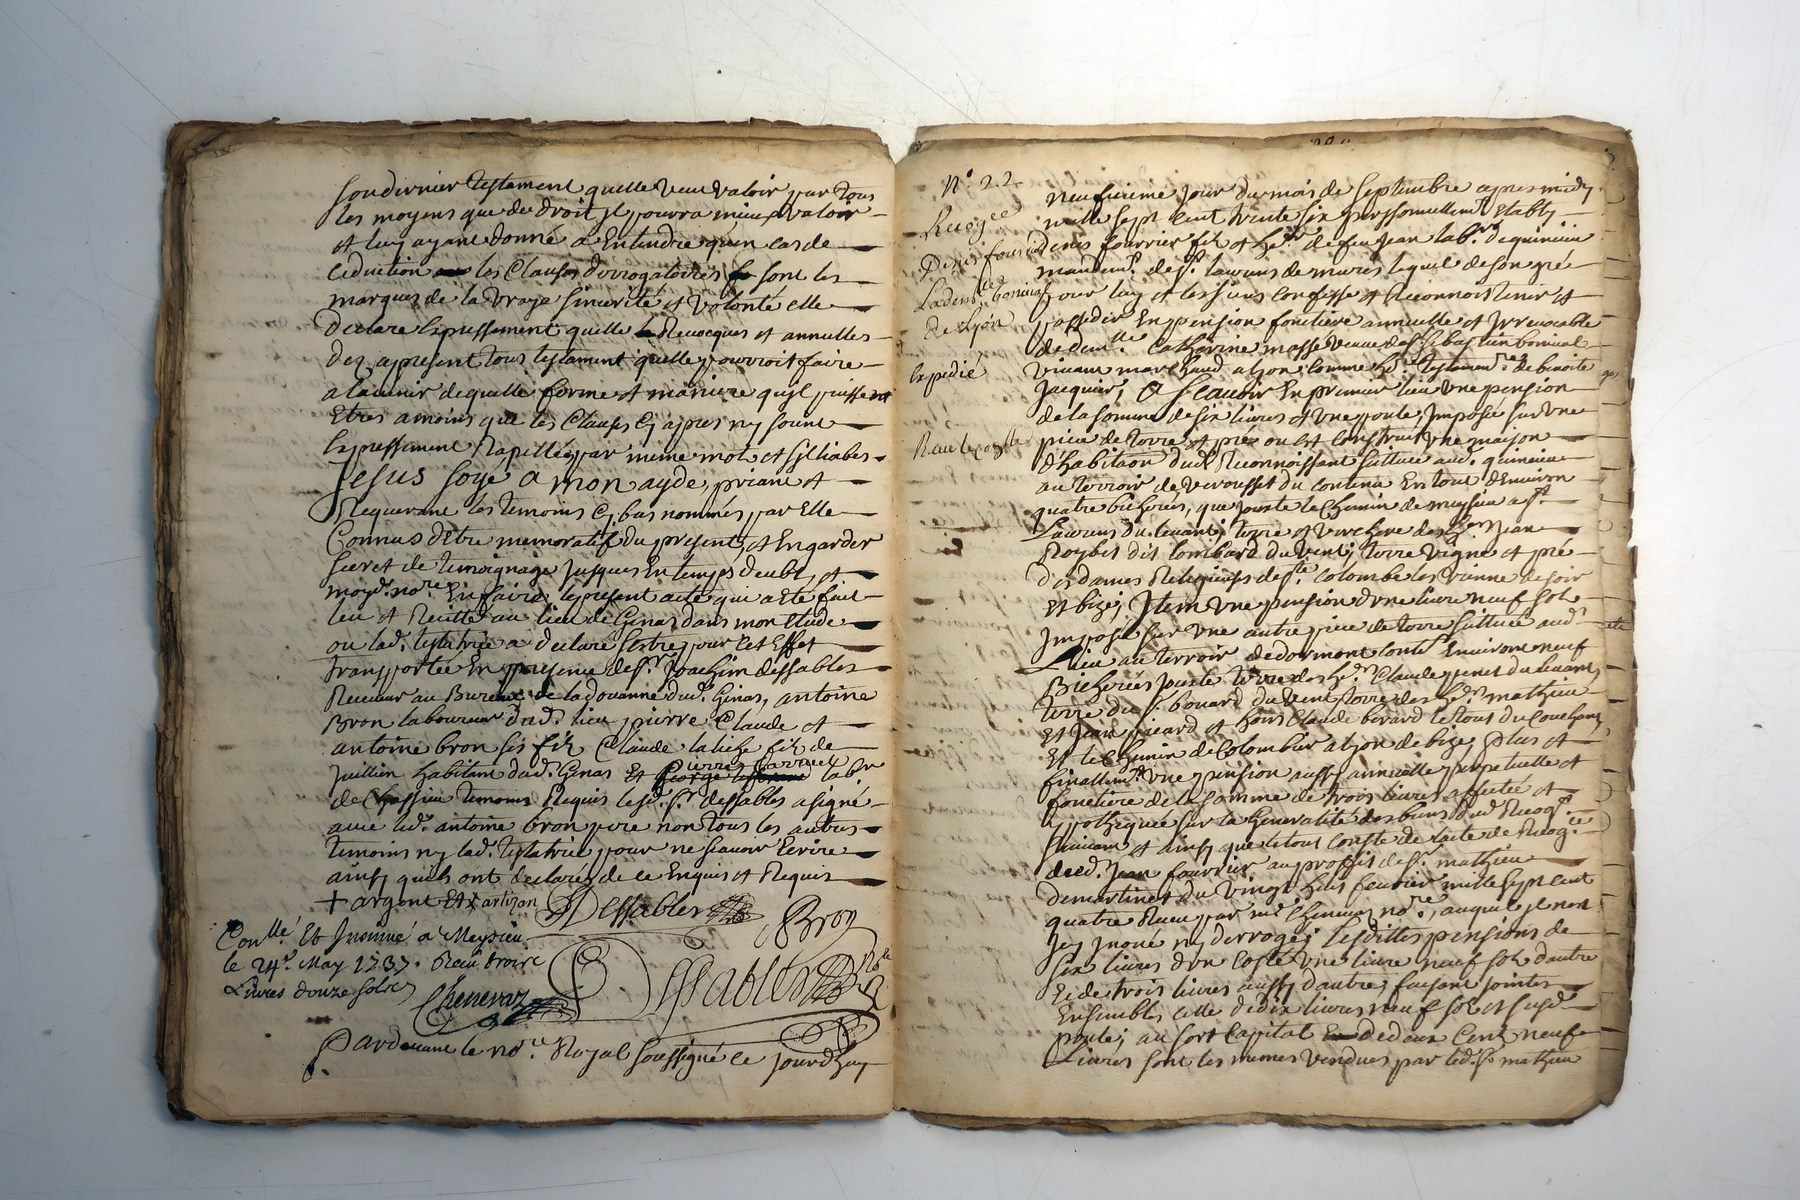 son dernier testament quelle veut valoir par tous
les moyens que de droit il pourra mieux valoir
et luy ayant donné a Entendre qu'en cas de
les Clauses derrogatoires sont les
marques de la vraye sincerité et volonté elle
declare Expressement quelle Revocques et annulles
dez apresent tous testament quelle pourroit faire
a lavenir de quelle forme et maniere quil puissent
Etres amoins que les Clauses Cy apres ny soient
Expressement Rapellées par meme mot et silliabes
Jesus soye a mon ayde, priant et
Requerant les temoins Cy bas nommés par Elle
Connus dEtre memoratif du present, et En garder
secret de temoignage jusques En temps deub, et
moyd. nore. En faire le present acte qui a eté fait
leu et Recitté au lieu de Genas dans mon Etude
ou lad. testatrice a declaré sestre pour cet Effet
transportée En presence de sr. Joachim dessables
Receveur au Bureau de la douanne dud. Genas, antoine
Bron laboureur dud. lieu, pierre Claude et
antoine bron ses fils Claude fils de
Jullien habitant dud. Genas Et pierre labr
de Chassieu temoins Requis led. sr. dessables a signé
avec led. antoine bron pere non tous les autres
temoins ny lad. testatrice pour ne scavoir Ecrire
ainsy quils ont declarés de ce Enquis et Requis
+ argent Et
Dessables Bron
Conllé Et Insinué a Meysieu
le 24e. May 1737. Reçu troize
Livres douze sols
Chenevaz
Dessables Nore
Pardevant le nore. Royal soussigné ce jourdhuy
N°. 22.
neufvieme jour du mois de septembre apres midy
Recogce
mille sept cent trente six personnellemt. Etably
Denis fourrier
Denis fourrier fils et her. de feu Jean labr. de quincieu
mandemt. de st. laurens de mures lequel de son gré
La demlle bonival
pour luy et les siens Confesse et Reconnoist tenir et
de Lyon
posseder En pension fonciere annuelle et Irrevocable
de demlle. Catherine masse veuve de sr. sebastien bonival
Expedié
vivant marchand a lyon comme her. testamenre. de benoite
jacquier, A Scavoir En premier lieu une pension
de la somme de six livres et une poule, Imposée sur une
piece de terre et pré ou est Construit une maison
d'habitaon dud. Reconnoissant scittuée aud. quincieu
au terroir de verousset du contenu En tout dEnviron
quatre bicherées, que jouxte le Chemin de meysieu a st.
Laurens du levant; terre et verchere des hers. Jean
Roybet dit lombard du vent; terre vigne et pré
des dames Religieuses de ste. Colombe les vienne de soir
et bize; Item une pension dune livre neuf sols
Imposée sur une autre piece de terre scittuée aud.
Lieu au terroir de dormont contt. Environ neuf
Bicherées jouxte terre des hers. Claude du levant,
terre du sr. bouard du vent, terre des hers. mathieu
Et Jean sicard et hoirs Claude berard le tout du Couchant,
Et le Chemin de Colombier a lyon de bize; plus et
finallemt. une pension aussy annuelle perpetuelle et
fonciere de la somme de trois livres affectée et
ypothequée sur la Generalité des biens dud. Recogt.
suivant et ainsy que le tout conste de lacte de Recogce.
dud. Jean fourrier au proffit de sr. mathieu
demartinet du vingt huit fevrier mille sept cent
quatre Receu par me. Chenevaz nore., auquel il non
Jcy Inové ny derrogé; Lesdittes pensions de
six livres dun Costé une livre neuf sols dautre
Et de trois livres aussy dautre, faisant jointes
Ensembles celle de dix livres neuf sols et susd.
poule; au sort Capital de deux Cent neuf
Livres sont les memes vendues par led. sr. mathieu